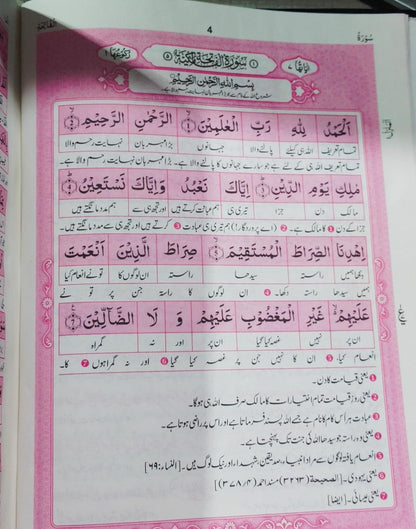 4
سُوْرَةُ
اٰیاتُہا ۷
۱ سُوْرَةُ الْفَاتِحَةِ مَكِّيَّةٌ ۵
رُکُوْعُھَا ۱
بِسْمِ اللهِ الرَّحْمٰنِ الرَّحِيْمِ
شروع اللہ کے نام سے جو بڑا مہربان نہایت رحم والا ہے۔
اَلْحَمْدُ لِلّٰهِ رَبِّ الْعٰلَمِيْنَ ۱ الرَّحْمٰنِ الرَّحِيْمِ ۲
تمام تعریف اللہ ہی کیلئے پالنے والا جہانوں بڑا مہربان نہایت رحم والا
تمام تعریف اللہ ہی کے لئے ہے جو سارے جہانوں کا پالنے والا ہے۔ بڑا مہربان نہایت رحم والا ہے۔
مٰلِكِ يَوْمِ الدِّيْنِ ۳ اِيَّاكَ نَعْبُدُ وَاِيَّاكَ نَسْتَعِيْنُ ۴
مالک دن جزا تیری ہی ہم عبادت کرتے ہیں اور تجھ ہی سے ہم مدد مانگتے ہیں
جزا کے دن ❶ کا مالک ہے۔ ❷ (اے پروردگار!) ہم تیری ہی عبادت ❸ کرتے ہیں اور تجھ ہی سے مدد مانگتے ہیں۔
اِهْدِنَا الصِّرَاطَ الْمُسْتَقِيْمَ ۵ صِرَاطَ الَّذِيْنَ اَنْعَمْتَ
دکھا ہمیں راستہ سیدھا راستہ ان لوگوں کا تو نے انعام کیا
ہمیں سیدھا راستہ دکھا۔ ❹ ان لوگوں کا راستہ جن پر تو نے
عَلَيْهِمْ ۶ غَيْرِ الْمَغْضُوْبِ عَلَيْهِمْ وَ لَا الضَّآلِّيْنَ ۷
ان پر نہیں غصہ کیا گیا ان پر اور نہ گمراہ
انعام کیا۔ ❺ ان کا نہیں جن پر غصہ کیا گیا ❻ اور نہ گمراہوں ❼ کا۔
❶ یعنی قیامت کا دن۔
❷ یعنی روز قیامت تمام اختیارات کا مالک صرف اللہ ہی ہوگا۔
❸ عبادت ہر اُس کام کا نام ہے جسے اللہ پسند فرماتا ہے اور اس پر راضی ہوتا ہے۔
❹ یعنی وہ راستہ جو سیدھا اللہ کی جنت تک پہنچتا ہے۔
❺ انعام یافتہ لوگوں سے مراد انبیاء، صدیقین، شہداء اور نیک لوگ ہیں۔ [النساء: ٦٩]
❻ یعنی یہودی۔ [الصحیحۃ (۳۲۶۳) مسند احمد (۴/۳۷۸)]
❼ یعنی عیسائی۔ [ایضاً]